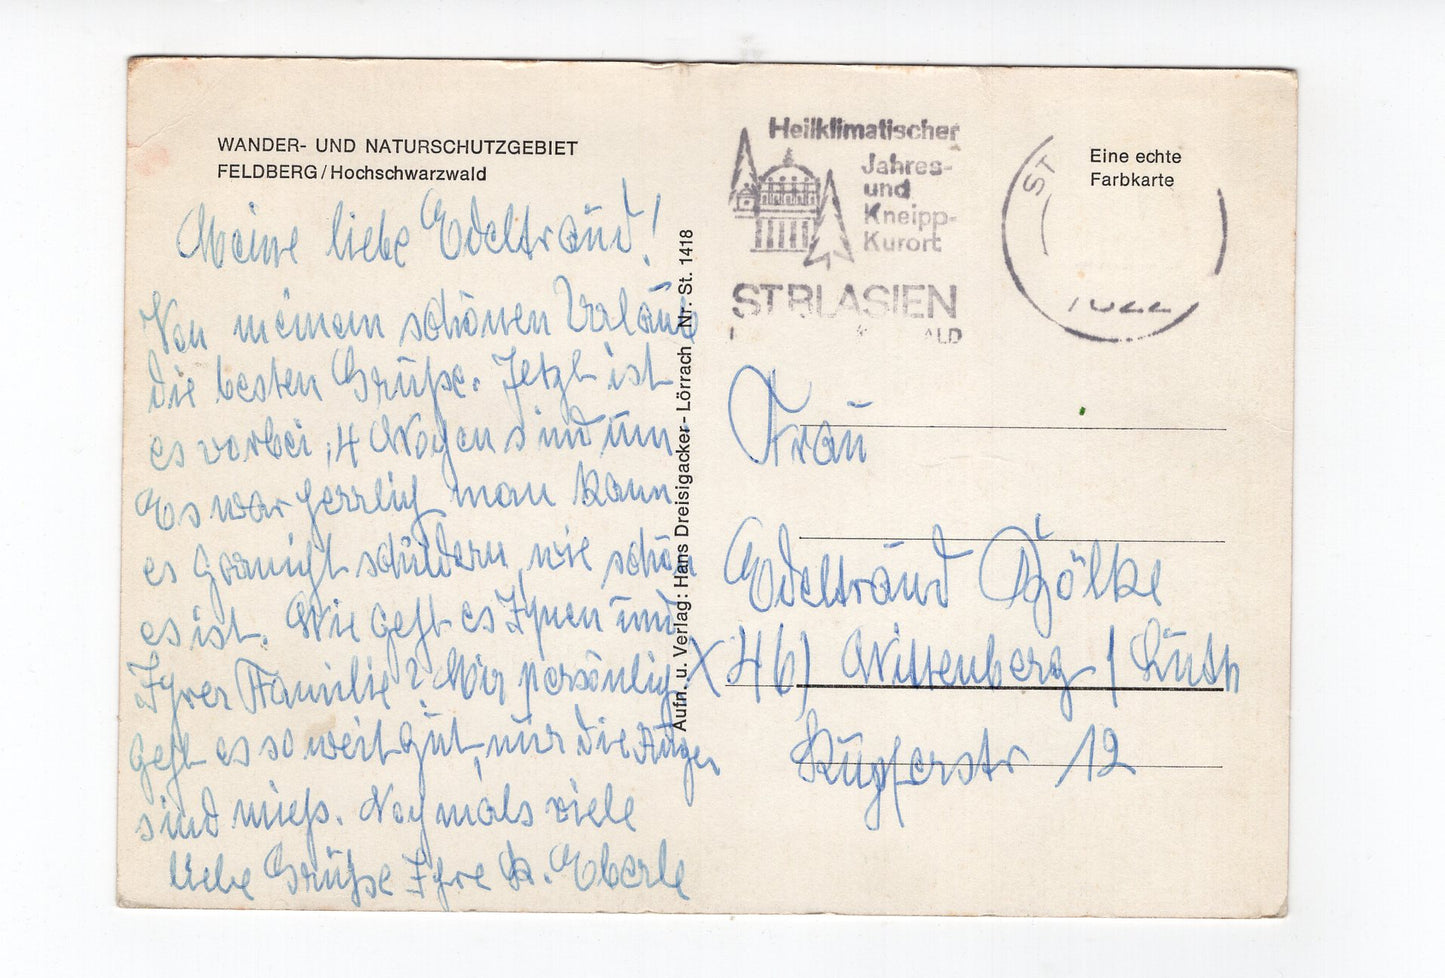 WANDER- UND NATURSCHUTZGEBIET
FELDBERG/Hochschwarzwald
Meine liebe Edeltraud!
Von meinem schönen Urlaub
die besten Grüße. Jetzt ist
es vorbei, 4 Wochen sind um.
Es war herrlich man kann
es garnicht schildern, wie schön
es ist. Wie geht es Ihnen und
Ihrer Familie? Mir persönlich
geht es so weit gut, nur die Augen
sind mieß. Nochmals viele
liebe Grüße Ihre K. Eberle
Aufn. u. Verlag: Hans Dreisigacker - Lörrach Nr. St. 1418
Heilklimatischer
Jahres-
und
Kneipp-
Kurort
ST BLASIEN
ALD
ST
Eine echte
Farbkarte
Frau
Edeltraud
X 46) Wittenberg / Luth
Kupferstr 12